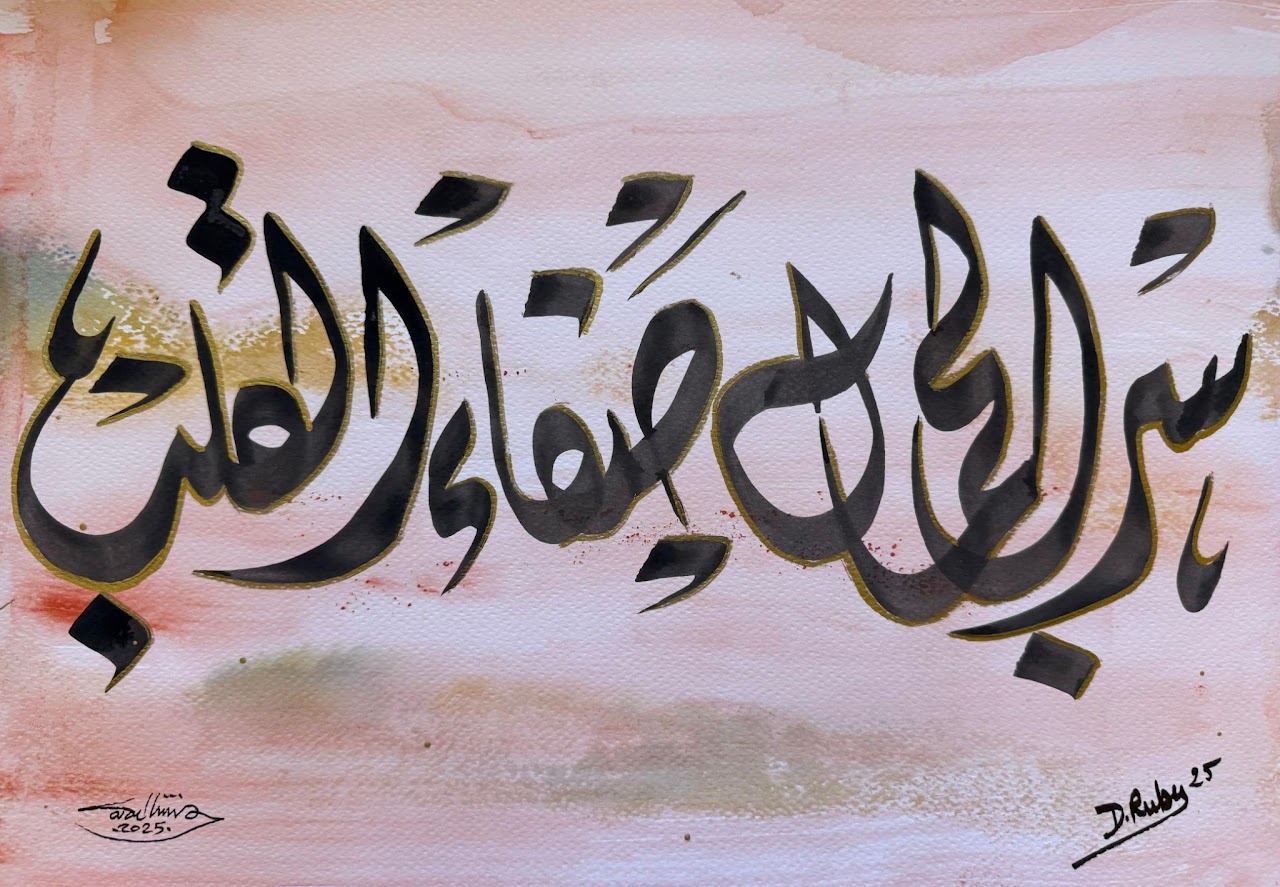 سر الجمال صفاء القلب
.2025.
D.Ruby 25